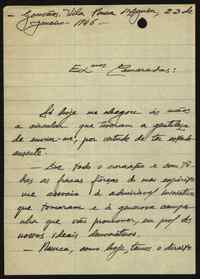 - Gouveia, Vila Nova Tazem, 23 de
Janeiro - 1946 -
Ex.mos Camaradas:
Só hoje me chegou às mãos
a circular que tiveram a gentileza
de enviar-me, por virtude de ter estado
ausente.
- De todo o coração e com to-
das as fracas forças do meu espírito
me associo à admirável iniciativa
que tomaram e à generosa campa-
nha que vão promover, em prol dos
nossos ideais democráticos.
- Nunca, como hoje, temos o direito